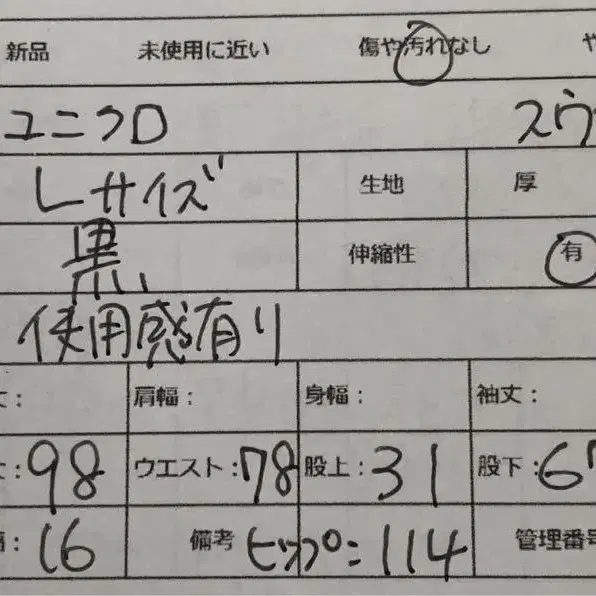 新品 未使用に近い 傷や汚れなし や
ユニクロ スウ
Lサイズ 生地 厚
黒 伸縮性 有
使用感有り
丈: 肩幅: 身幅: 袖丈:
丈:98 ウエスト:78 股上:31 股下:6
幅:16 備考 ヒップ:114 管理番号